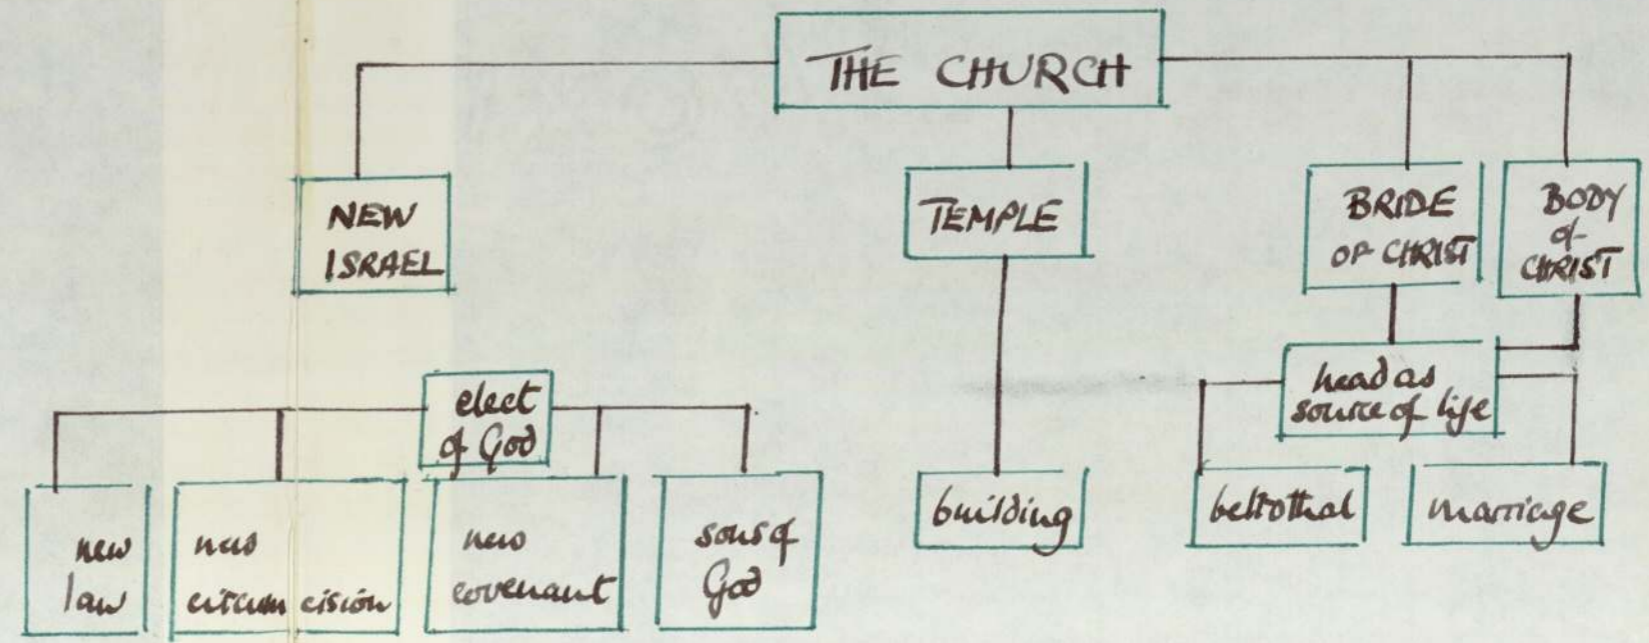 THE CHURCH
NEW
ISRAEL
TEMPLE
BRIDE
OF CHRIST
BODY
of
CHRIST
elect
of God
head as
source of life
new
law
new
circumcision
new
covenant
sons of
God
building
betrothal
marriage